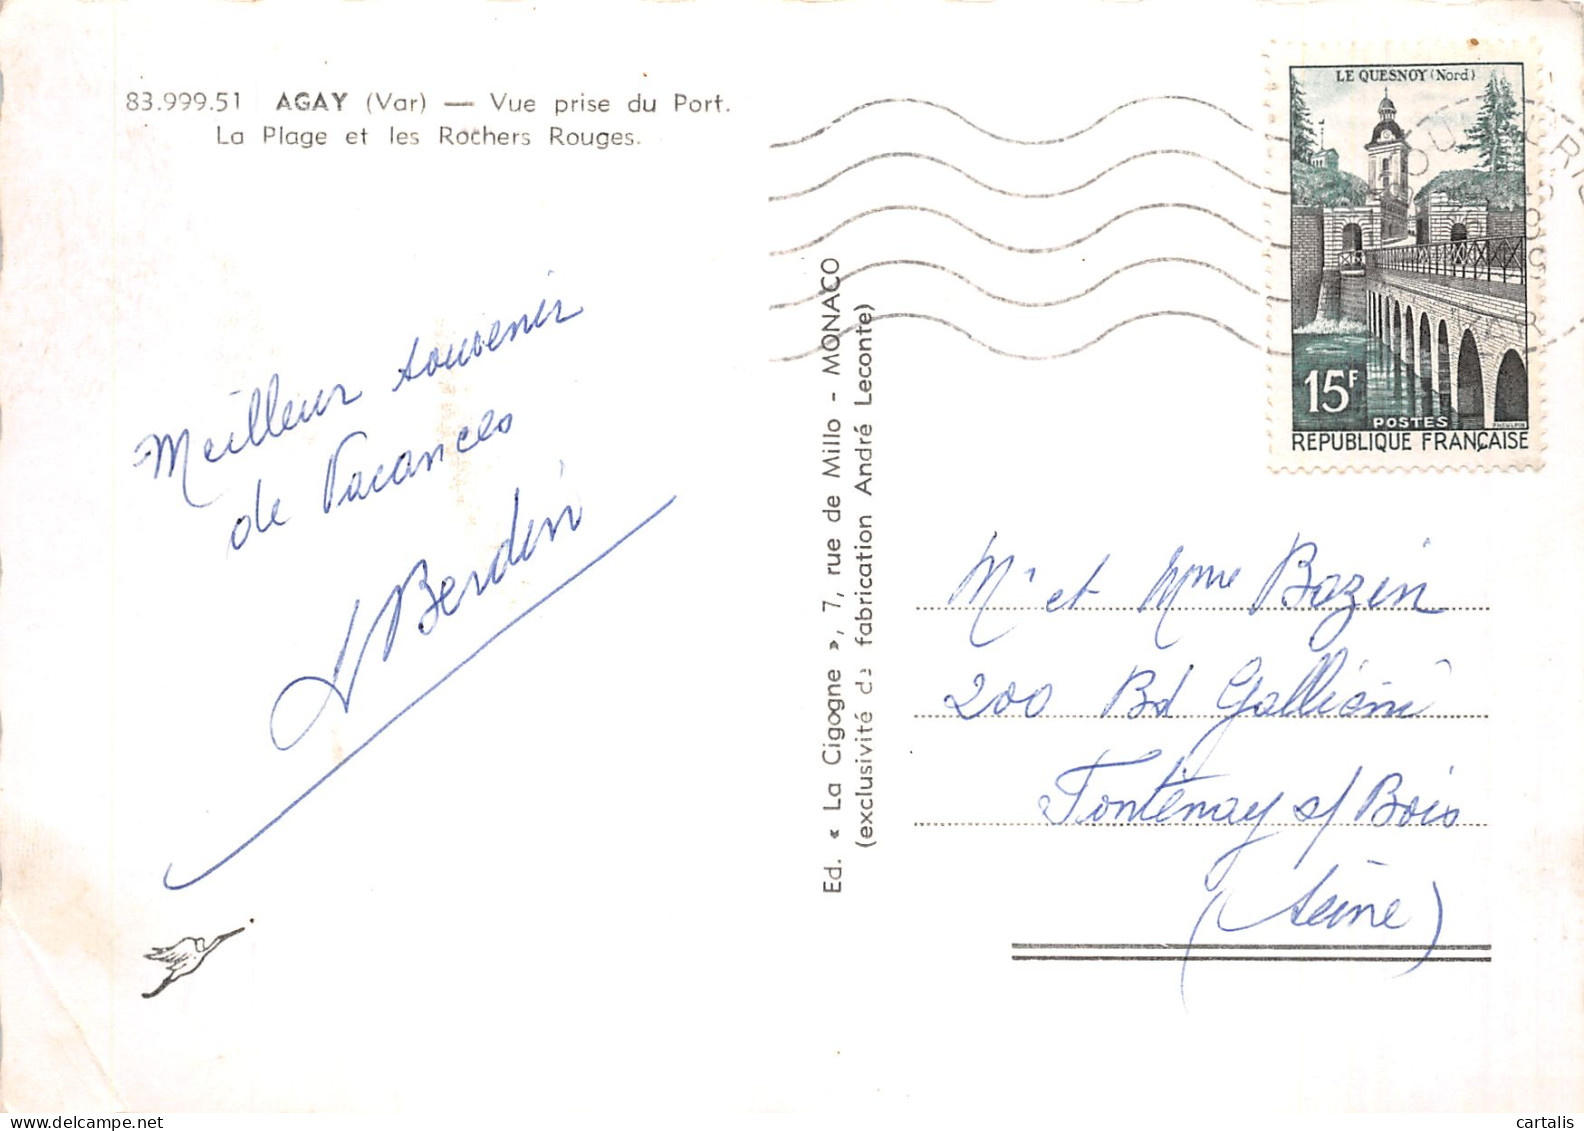 83.999.51 AGAY (Var) — Vue prise du Port.
La Plage et les Rochers Rouges.
Meilleur souvenir
de Vacances
Berdin
Ed. « La Cigogne », 7, rue de Millo - MONACO
(exclusivité de fabrication André Leconte)
LE QUESNOY (Nord)
15F
POSTES
REPUBLIQUE FRANÇAISE
Mr et Mme Bazin
200 Bd Galliéni
Fontenay s/ Bois
(Seine)
cartalis
delcampe.net